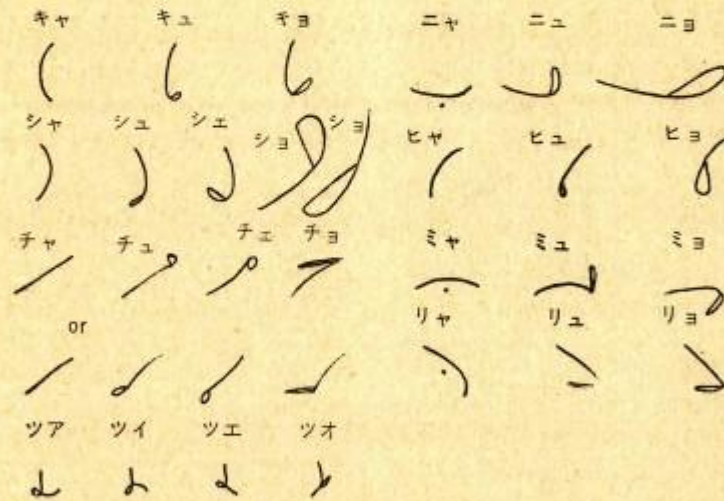 キャ キュ キョ ニャ ニュ ニョ
シャ シュ シェ ショ ショ ヒャ ヒュ ヒョ
チャ チュ チェ チョ ミャ ミュ ミョ
or リャ リュ リョ
ツア ツイ ツエ ツオ